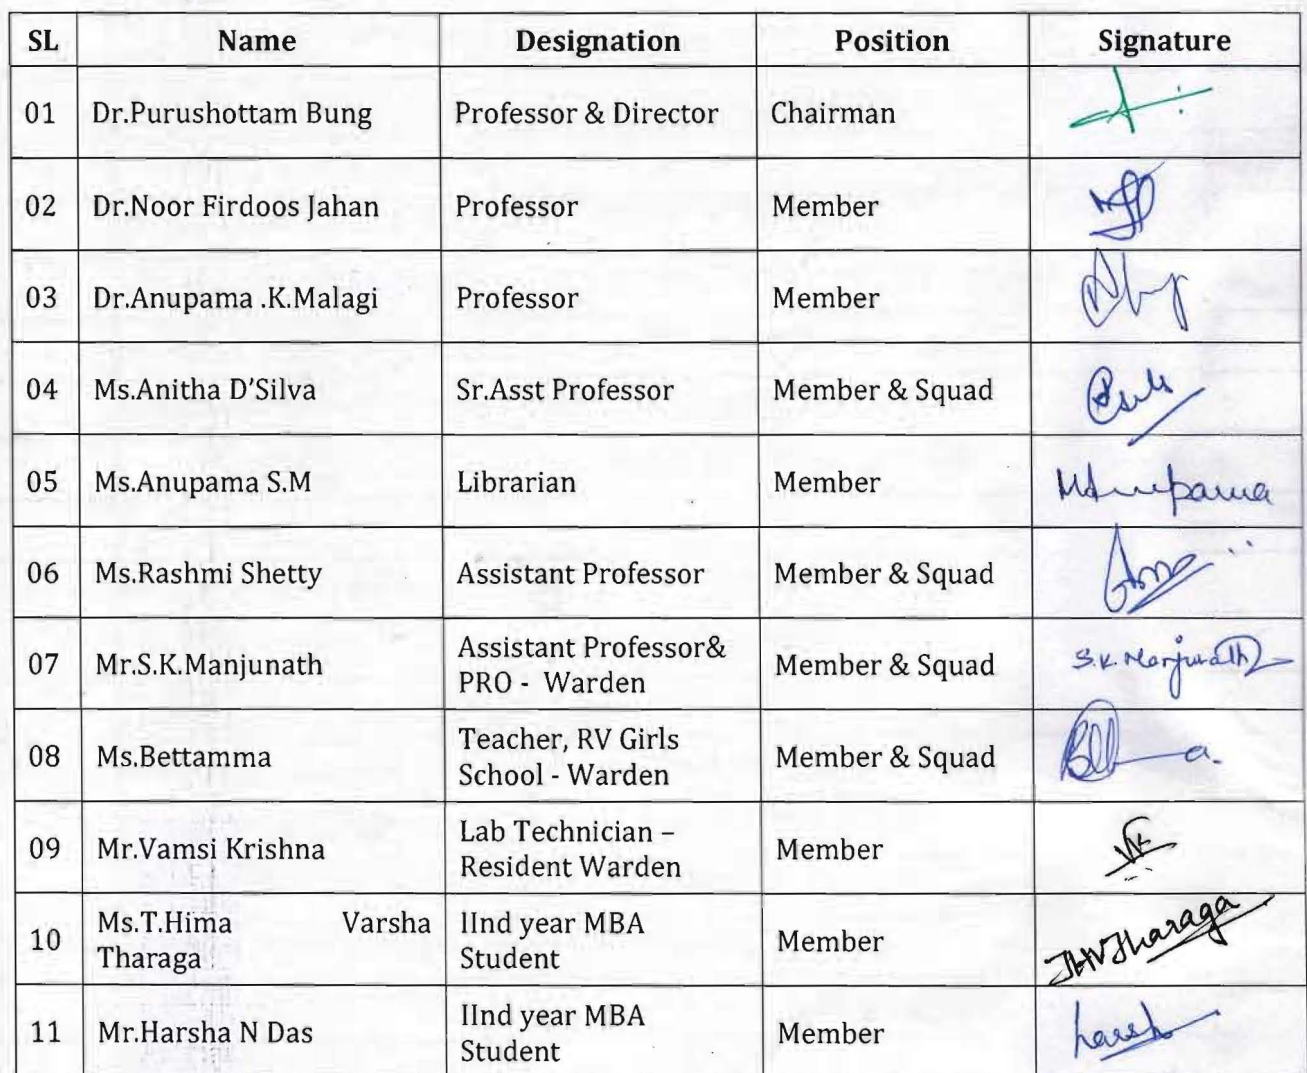 SL Name Designation Position Signature
01 Dr.Purushottam Bung Professor & Director Chairman
02 Dr.Noor Firdoos Jahan Professor Member
03 Dr.Anupama .K.Malagi Professor Member
04 Ms.Anitha D'Silva Sr.Asst Professor Member & Squad
05 Ms.Anupama S.M Librarian Member
06 Ms.Rashmi Shetty Assistant Professor Member & Squad
07 Mr.S.K.Manjunath Assistant Professor& Member & Squad S.K.Manjunath
PRO - Warden
08 Ms.Bettamma Teacher, RV Girls Member & Squad
School - Warden
09 Mr.Vamsi Krishna Lab Technician – Member VK
Resident Warden
10 Ms.T.Hima Varsha IInd year MBA Member THVTharaga
Tharaga Student
11 Mr.Harsha N Das IInd year MBA Member
Student